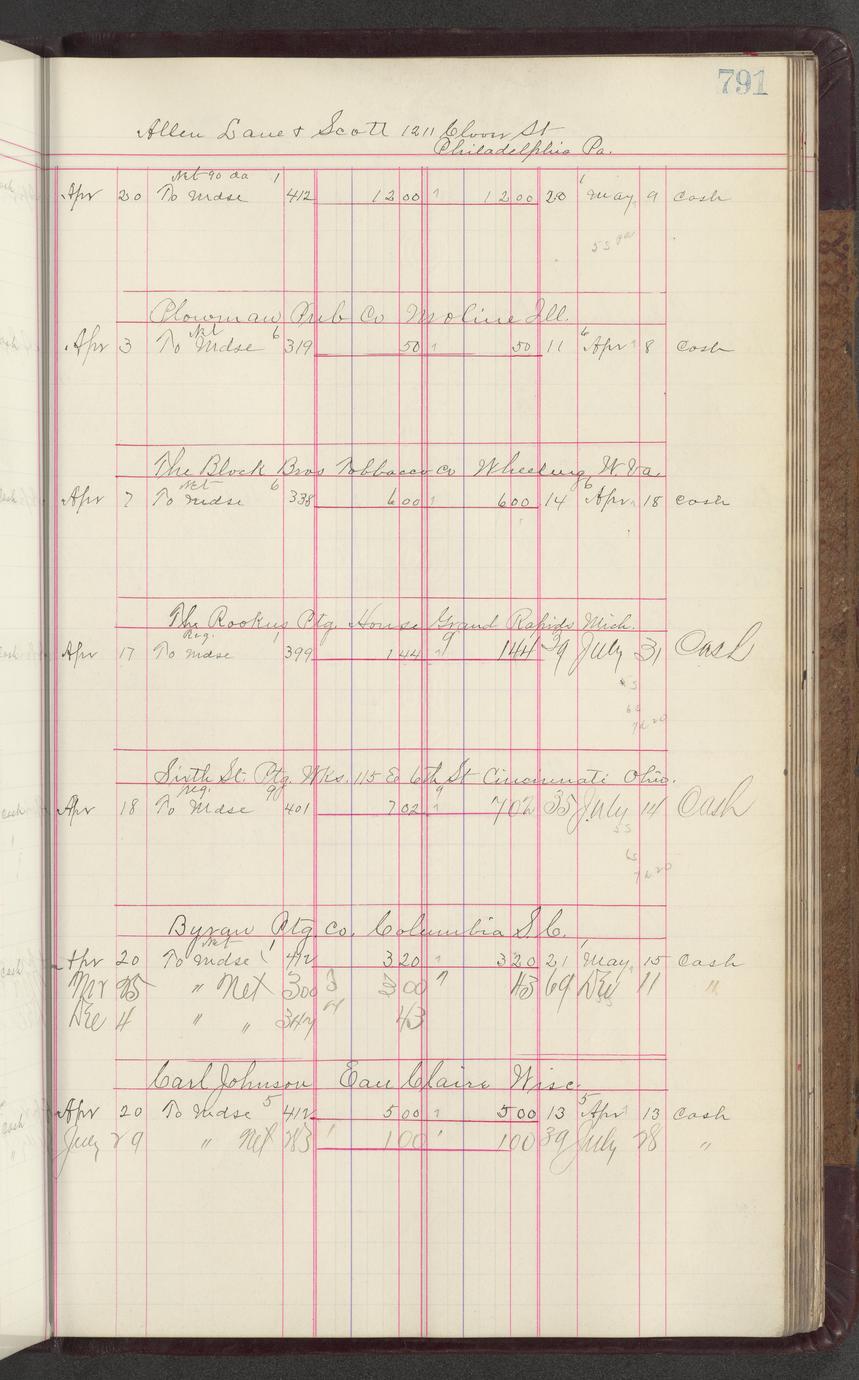 791
Allen Lane & Scott 1211 Clover St
Philadelphia Pa.
Net 90 da 1
Apr 20 To Mdse 412 12 00 " 12 00 20 May 9 Cash
Plowman Pub Co Moline Ill.
Net 6
Apr 3 To Mdse 319 50 " 50 11 Apr 8 Cash
The Block Bros Tobbacco Co Wheeling W. Va.
Net 6
Apr 7 To Mdse 338 6 00 " 6 00 14 Apr 18 Cash
The Rookus Ptg. House Grand Rapids Mich.
Reg. 1
Apr 17 To Mdse 399 1 44 " 1 44 39 July 31 Cash
Sixth St. Ptg. Wks. 115 E 6th St Cincinnati Ohio.
reg.
Apr 18 To Mdse 401 7 02 " 7 02 35 July 14 Cash
Byran Ptg. Co. Columbia S.C.
Net 1
Apr 20 To Mdse 412 3 20 " 3 20 21 May 15 Cash
25 " Net 300 " 43 69 Dec 11 "
Dec 4 " " 347 43
Carl Johnson Eau Claire Wisc.
Apr 20 To Mdse 5 412 5 00 " 5 00 13 Apr 13 Cash
July 29 " Net 283 1 00 1 00 39 July 28 "